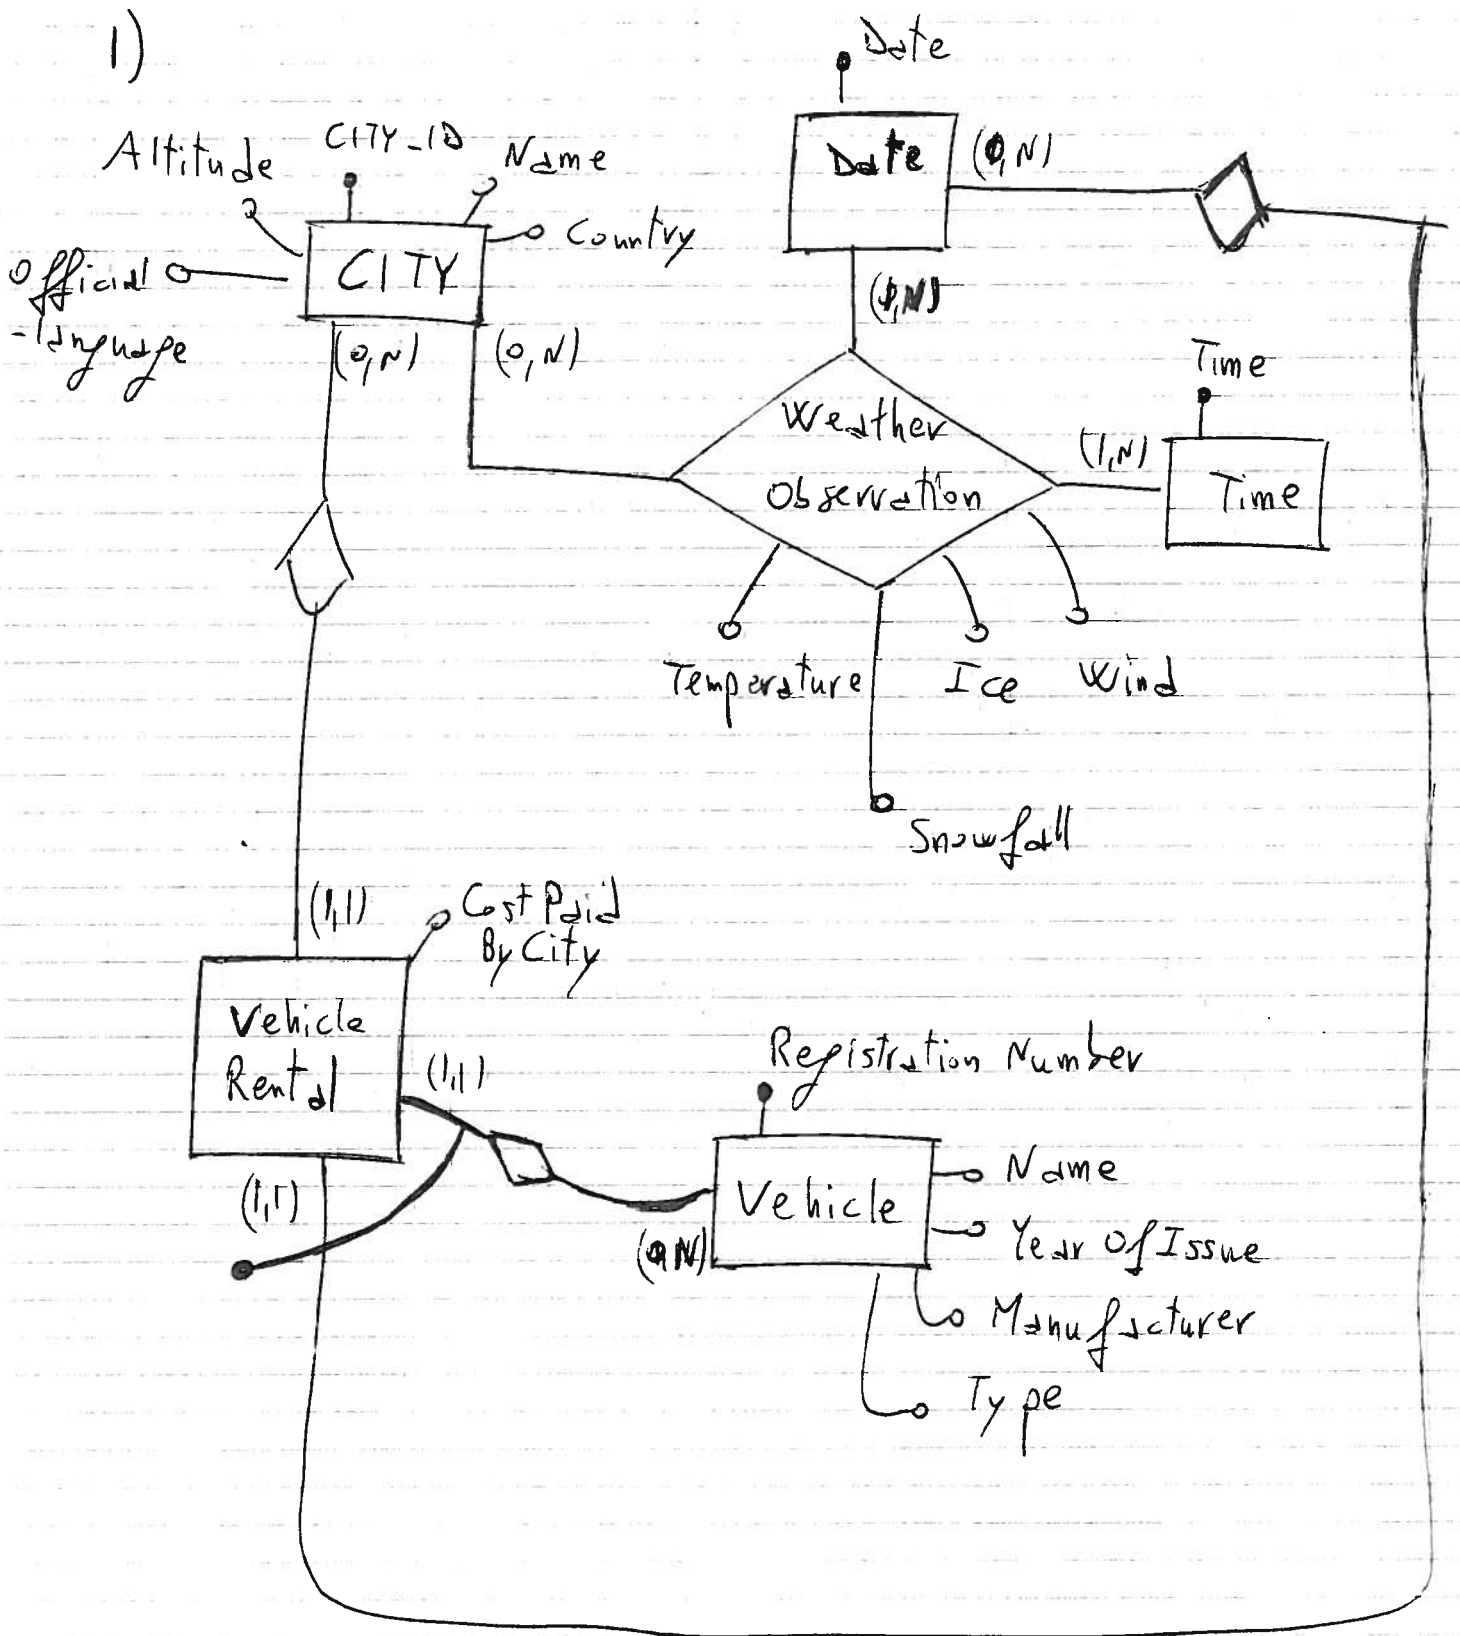 1)
Date
Altitude
CITY_ID
Name
Date
(0,N)
Country
Official
-language
CITY
(0,N)
(0,N)
Time
Weather
Observation
(1,N)
Time
Temperature
Ice
Wind
Snowfall
(1,1)
Cost Paid
By City
Vehicle
Rental
(1,1)
Registration Number
(1,1)
Vehicle
Name
Year Of Issue
Manufacturer
Type